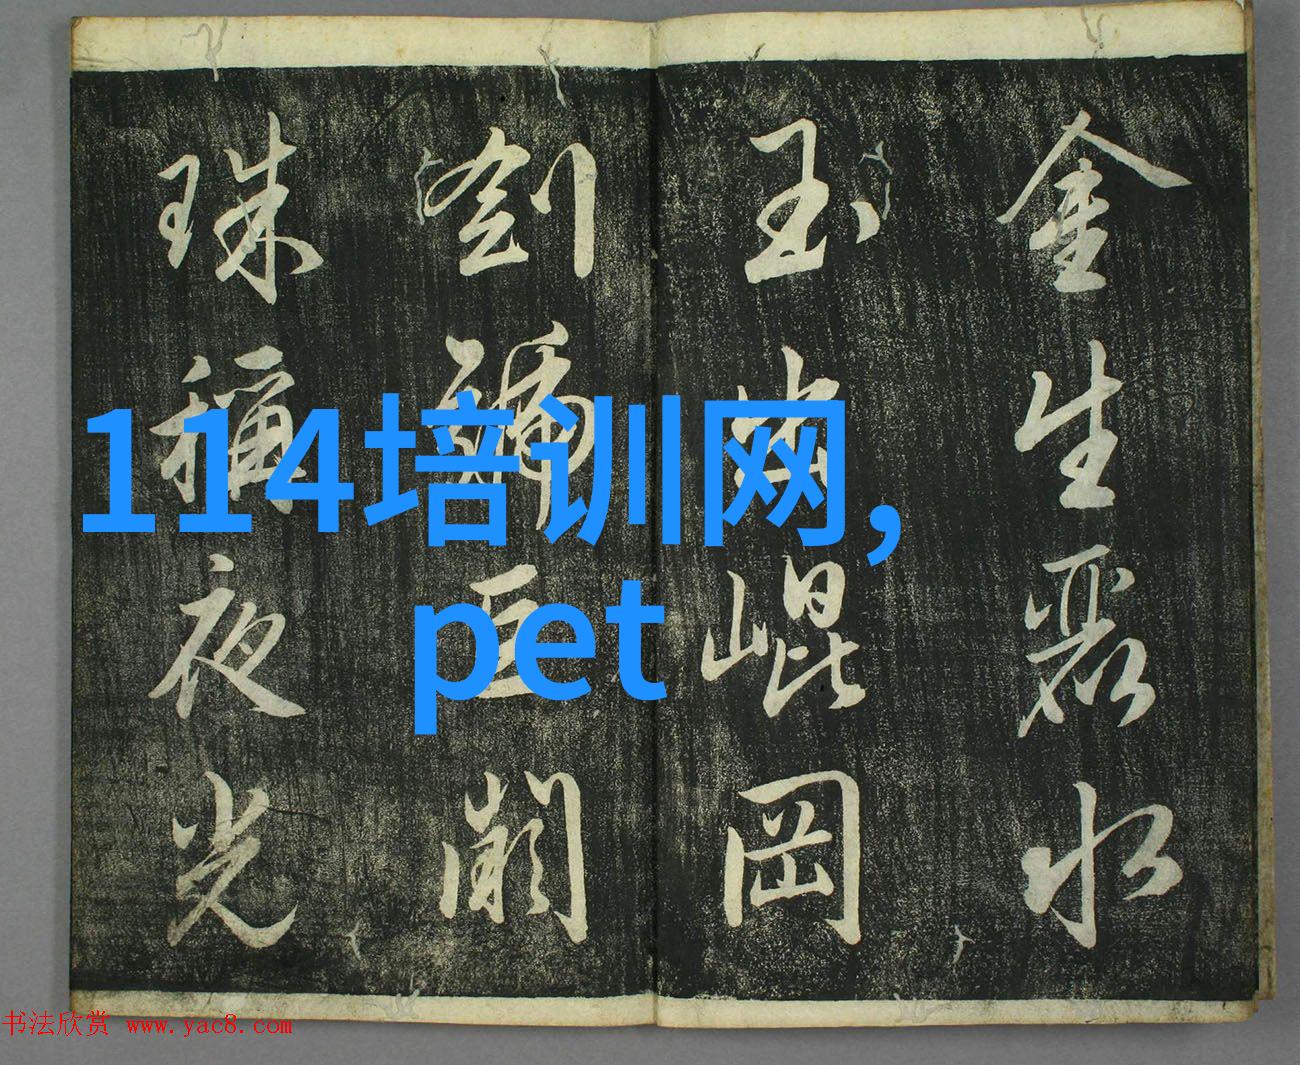 金生麗水
玉出崐岡
劍號巨闕
珠稱夜光
114培训网,
pet
书法欣赏 www.yac8.com